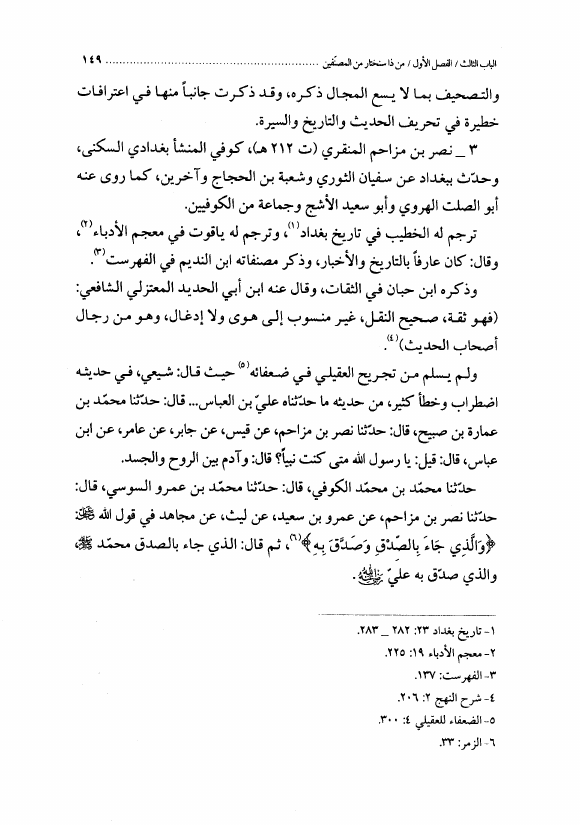 الباب الثالث / الفصل الأول / من ذا سنختار من المصنّفين ................................................................ ١٤٩
والتصحيف بما لا يسع المجال ذكره، وقد ذكرت جانباً منها في اعترافات
خطيرة في تحريف الحديث والتاريخ والسيرة.
٣ _ نصر بن مزاحم المنقري (ت ٢١٢ هـ)، كوفي المنشأ بغدادي السكنى،
وحدّث ببغداد عن سفيان الثوري وشعبة بن الحجاج وآخرين، كما روى عنه
أبو الصلت الهروي وأبو سعيد الأشج وجماعة من الكوفيين.
ترجم له الخطيب في تاريخ بغداد(١)، وترجم له ياقوت في معجم الأدباء(٢)،
وقال: كان عارفاً بالتاريخ والأخبار، وذكر مصنفاته ابن النديم في الفهرست(٣).
وذكره ابن حبان في الثقات، وقال عنه ابن أبي الحديد المعتزلي الشافعي:
(فهو ثقة، صحيح النقل، غير منسوب إلى هوى ولا إدغال، وهو من رجال
أصحاب الحديث)(٤).
ولم يسلم من تجريح العقيلي في ضعفائه(٥) حيث قال: شيعي، في حديثه
اضطراب وخطأ كثير، من حديثه ما حدّثناه عليّ بن العباس... قال: حدّثنا محمّد بن
عمارة بن صبيح، قال: حدّثنا نصر بن مزاحم، عن قيس، عن جابر، عن عامر، عن ابن
عباس، قال: قيل: يا رسول الله متى كنت نبياً؟ قال: وآدم بين الروح والجسد.
حدّثنا محمّد بن محمّد الكوفي، قال: حدّثنا محمّد بن عمرو السوسي، قال:
حدّثنا نصر بن مزاحم، عن عمرو بن سعيد، عن ليث، عن مجاهد في قول الله ﷻ:
﴿وَالَّذِي جَاءَ بِالصِّدْقِ وَصَدَّقَ بِهِ﴾(٦)، ثم قال: الذي جاء بالصدق محمّد ﷺ،
والذي صدّق به عليّ .
١- تاريخ بغداد ٢٣: ٢٨٢ _ ٢٨٣.
٢- معجم الأدباء ١٩: ٢٢٥.
٣- الفهرست: ١٣٧.
٤- شرح النهج ٢: ٢٠٦.
٥- الضعفاء للعقيلي ٤: ٣٠٠.
٦- الزمر: ٣٣.